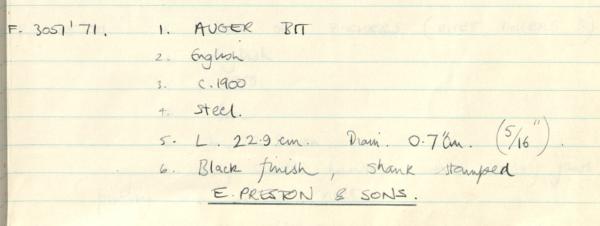 F. 3051'71. 1. AUGER BIT
2. English
3. C.1900
4. Steel.
5. L. 22.9 cm. Diam. 0.7 cm. (5/16").
6. Black finish, shank stamped
E. PRESTON & SONS.